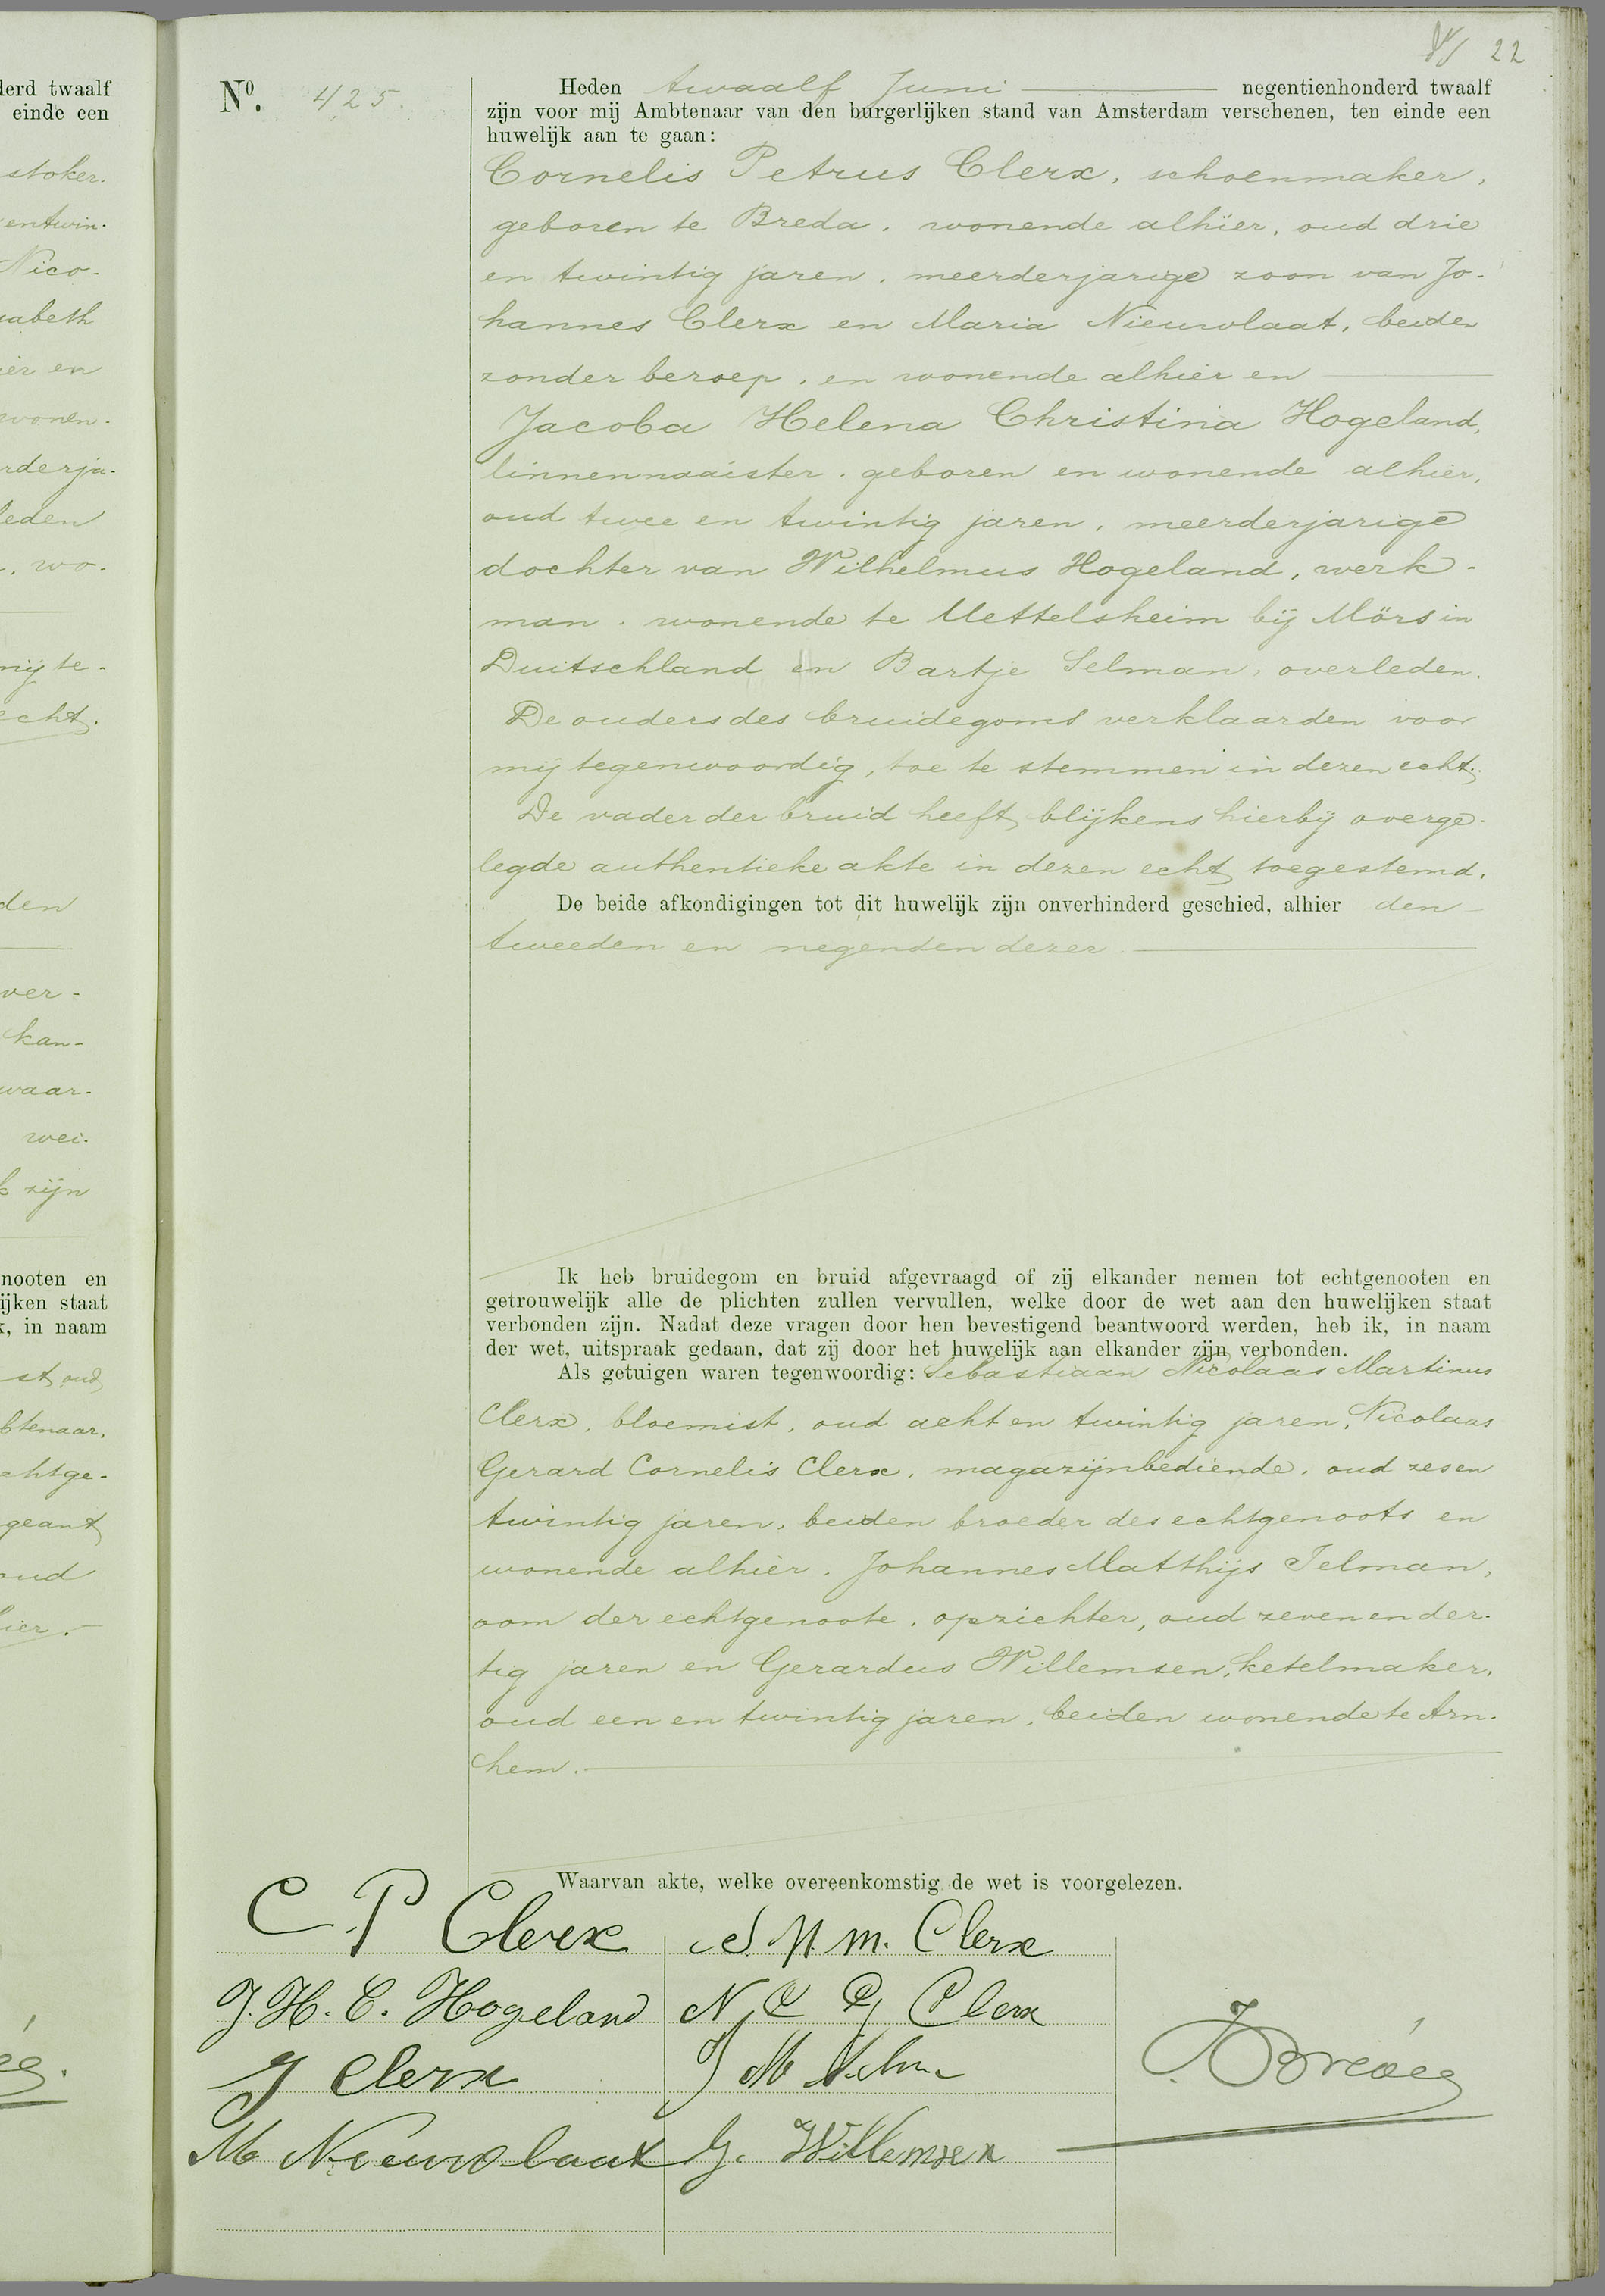 22
derd twaalf
einde een
stoker.
entwin-
Nico-
sabeth
ier en
wonen-
rderja-
leden
wo-
mij te-
echt.
den
ver-
kan-
waar-
wei-
k zijn
nooten en
ijken staat
k, in naam
st oud
btenaar,
echtge-
geant
oud
hier.
No. 425.
Heden twaalf Juni negentienhonderd twaalf
zijn voor mij Ambtenaar van den burgerlijken stand van Amsterdam verschenen, ten einde een
huwelijk aan te gaan:
Cornelis Petrus Clerx, schoenmaker,
geboren te Breda, wonende alhier, oud drie
en twintig jaren, meerderjarige zoon van Jo-
hannes Clerx en Maria Nieuwlaat, beiden
zonder beroep, en wonende alhier en
Jacoba Helena Christina Hogeland,
linnennaaister, geboren en wonende alhier,
oud twee en twintig jaren, meerderjarige
dochter van Wilhelmus Hogeland, werk-
man, wonende te Mettelsheim bij Mörs in
Duitschland en Bartje Selman, overleden.
De ouders des bruidegoms verklaarden voor
mij tegenwoordig, toe te stemmen in dezen echt.
De vader der bruid heeft blijkens hierbij overge-
legde authentieke akte in dezen echt toegestemd.
De beide afkondigingen tot dit huwelijk zijn onverhinderd geschied, alhier den
tweeden en negenden dezer.
Ik heb bruidegom en bruid afgevraagd of zij elkander nemen tot echtgenooten en
getrouwelijk alle de plichten zullen vervullen, welke door de wet aan den huwelijken staat
verbonden zijn. Nadat deze vragen door hen bevestigend beantwoord werden, heb ik, in naam
der wet, uitspraak gedaan, dat zij door het huwelijk aan elkander zijn verbonden.
Als getuigen waren tegenwoordig: Sebastiaan Nicolaas Martinus
Clerx, bloemist, oud acht en twintig jaren, Nicolaas
Gerard Cornelis Clerx, magazijnbediende, oud zes en
twintig jaren, beiden broeder des echtgenoots en
wonende alhier, Johannes Matthijs Selman,
oom der echtgenoote, opzichter, oud zeven en der-
tig jaren en Gerardus Willemsen, ketelmaker,
oud een en twintig jaren, beiden wonende te Arn-
hem.
Waarvan akte, welke overeenkomstig de wet is voorgelezen.
C P Clerx
S. N. M. Clerx
J. H. C. Hogeland
N C G Clerx
J Clerx
J M Selman
M Nieuwlaat
G. Willemsen